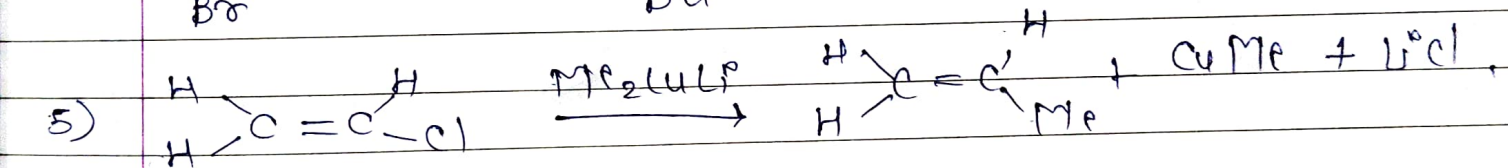 Br
5) H H C = C H Cl Me2CuLi → H H C = C H Me + CuMe + LiCl.